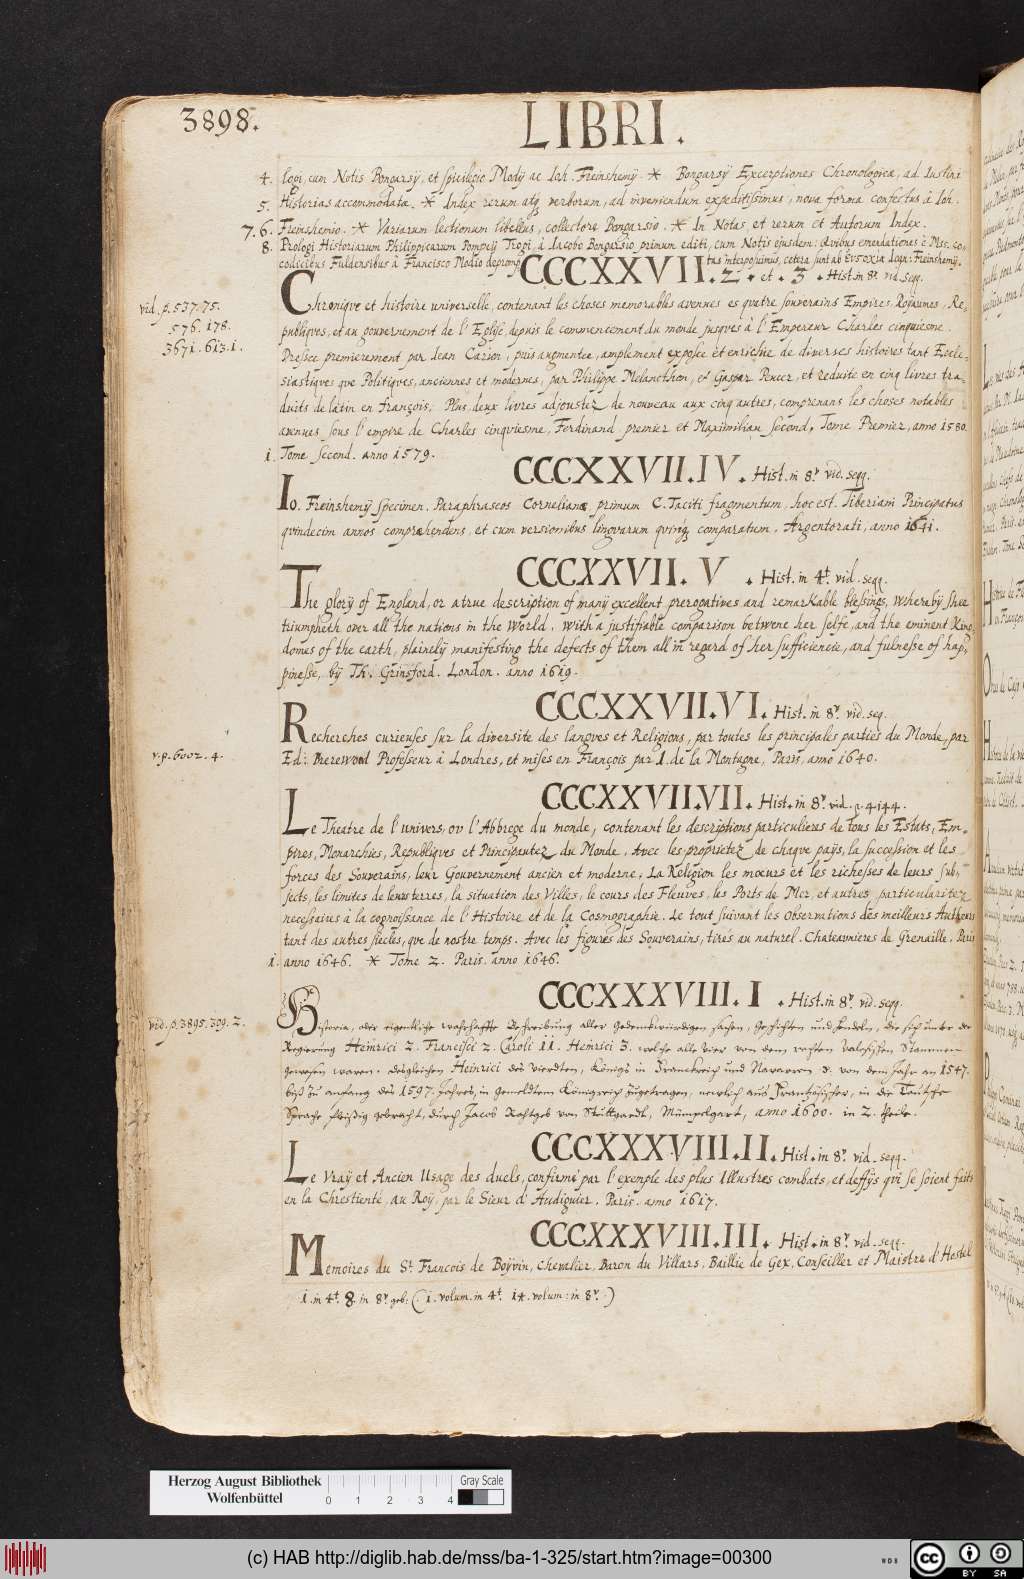 3898. LIBRI.
4. logi, cum Notis Bongarsÿ, et spicilegio Modÿ ac Joh. Freinshemÿ. * Bongarsÿ Excerptiones Chronologicæ, ad Iustini
5. Historias accommodatæ. * Index rerum atq verborum, ad inveniendum expeditissimus, nova forma confectus à Joh.
7. 6. Freinshemio. * Variarum lectionum libellus, collectore Bongarsio. * In Notas et rerum et Autorum Index.
8. Prologi Historiarum Philippicarum Pompeÿ Trogi, à Iacobo Bongarsio primum editi, cum Notis ejusdem: Qvibus emendationes è Mss.
codicibus Fuldensibus à Francisco Modio depromptas interposuimus, cetera sunt ab
CCCXXVII. 2. et. 3. Hist. in 8º. vid. seqq.
vid. p. 537. 75.
576. 178.
3671. 613. 1.
Chroniqve et histoire universelle, contenant les choses memorables avenues es qvatre souverains Empires, Royaumes, Re-
publiqves, et au gouvernement de l'Eglise depuis le commencement du monde jusqves à l'Empereur Charles cinqviesme.
Dressee premierement par Iean Carion, puis augmentee, amplement exposee et enrichie de diverses histoires tant Eccle-
siastiqves qve Politiqves, anciennes et modernes, par Philippe Melancthon, & Gaspar Peucer, et reduite en cinq livres tra-
duits de latin en françois. Plus deux livres adjoustez de nouveau aux cinq autres, comprenans les choses notables
avenues sous l'empire de Charles cinqviesme, Ferdinand premier et Maximilian second. Tome Premier, anno 1580.
1. Tome second. anno 1579.
CCCXXVII. IV. Hist. in 8º. vid. seqq.
Io. Freinshemÿ specimen Paraphraseos Cornelianæ primum C. Taciti fragmentum, hoc est. Tiberiani Principatus
qvindecim annos comprehendens, et cum versionibus lingvarum qvinq comparatum. Argentorati, anno 1641.
CCCXXVII. V. Hist. in 4t. vid. seqq.
The glorÿ of England, or a true description of manÿ excellent prerogatives and remarkable blessings, wherebÿ shee
triumpheth over all the nations in the world. with a justifiable comparison betwene her selfe, and the eminent King-
domes of the earth, plainelÿ manifesting the defects of them all in regard of her sufficiencie, and fulnesse of hap-
pinesse, bÿ Th. Grinsford. London. anno 1619.
CCCXXVII. VI. Hist. in 8º. vid. seq.
v. p. 6002. 4.
Recherches curieuses sur la diversite des langves et Religions, par toutes les principales parties du Monde, par
Ed: Brerewood Professeur à Londres, et mises en François par I. de la Montagne, Paris, anno 1640.
CCCXXVII. VII. Hist. in 8º. vid. p. 4144.
Le Theatre de l'univers, ou l'Abbrege du monde, contenant les descriptions particulieres de tous les Estats, Em-
pires, Monarchies, Republiqves et Principautez du Monde. Avec les proprietez de chaqve païs, la succession et les
forces des Souverains, leur Gouvernement ancien et moderne, La Religion les mœurs et les richesses de leurs sub-
jects, les limites de leurs terres, la situation des Villes, le cours des Fleuves, les Ports de Mer, et autres particularitez
necessaires à la cognoissance de l'Histoire et de la Cosmographie. Le tout suivant les observations des meilleurs Autheurs
tant des autres siecles, qve de nostre temps. Avec les figures des Souverains, tirés au naturel. Chateaunieres de Grenaille. Paris
1. anno 1646. * Tome 2. Paris. anno 1646.
CCCXXXVIII. I. Hist. in 8º. vid. seqq.
vid. p. 3895. 309. 2.
Historia, oder eigentliche warhaffte Beschreibung aller Gedenckwürdigen sachen, Geschichten und Händeln, die sich unter der
Regierung Heinrici 2. Francisci 2. Caroli 11. Heinrici 3. welche alle vier von dem rechten Valesischen Stammen
gewesen waren. desgleichen Heinrici des vierdten, Königs in Franckreich und Navarren &. von dem Jahr an 1547.
biß zu anfang des 1597. Jahres, in gemeldtem Königreich zugetragen, newlich auß Frantzösischer, in die Teutsche
Sprache fleißig gebracht, durch Jacob Rahtgeb von Stuttgardt, Mümpelgart, anno 1600. in 2. theile.
CCCXXXVIII. II. Hist. in 8º. vid. seqq.
Le Vraÿ et Ancien Usage des duels, confirmé par l'exemple des plus Illustres combats, et deffÿs qvi se soient faits
en la Chrestienté, au Roÿ, par le Sieur d'Audiguier. Paris. anno 1617.
CCCXXXVIII. III. Hist. in 8º. vid. seqq.
Memoires du Sr. Francois de Boÿvin, Chevalier, Baron du Villars, Baillie de Gex, Conseiller et Maistre d'Hostel
1. in 4t. 8. in 8º. geb: (. 1. volum. in 4t. 14. volum: in 8º.)
Herzog August Bibliothek
Wolfenbüttel
0 1 2 3 4
Gray Scale
(c) HAB http://diglib.hab.de/mss/ba-1-325/start.htm?image=00300
WDB
cc BY SA